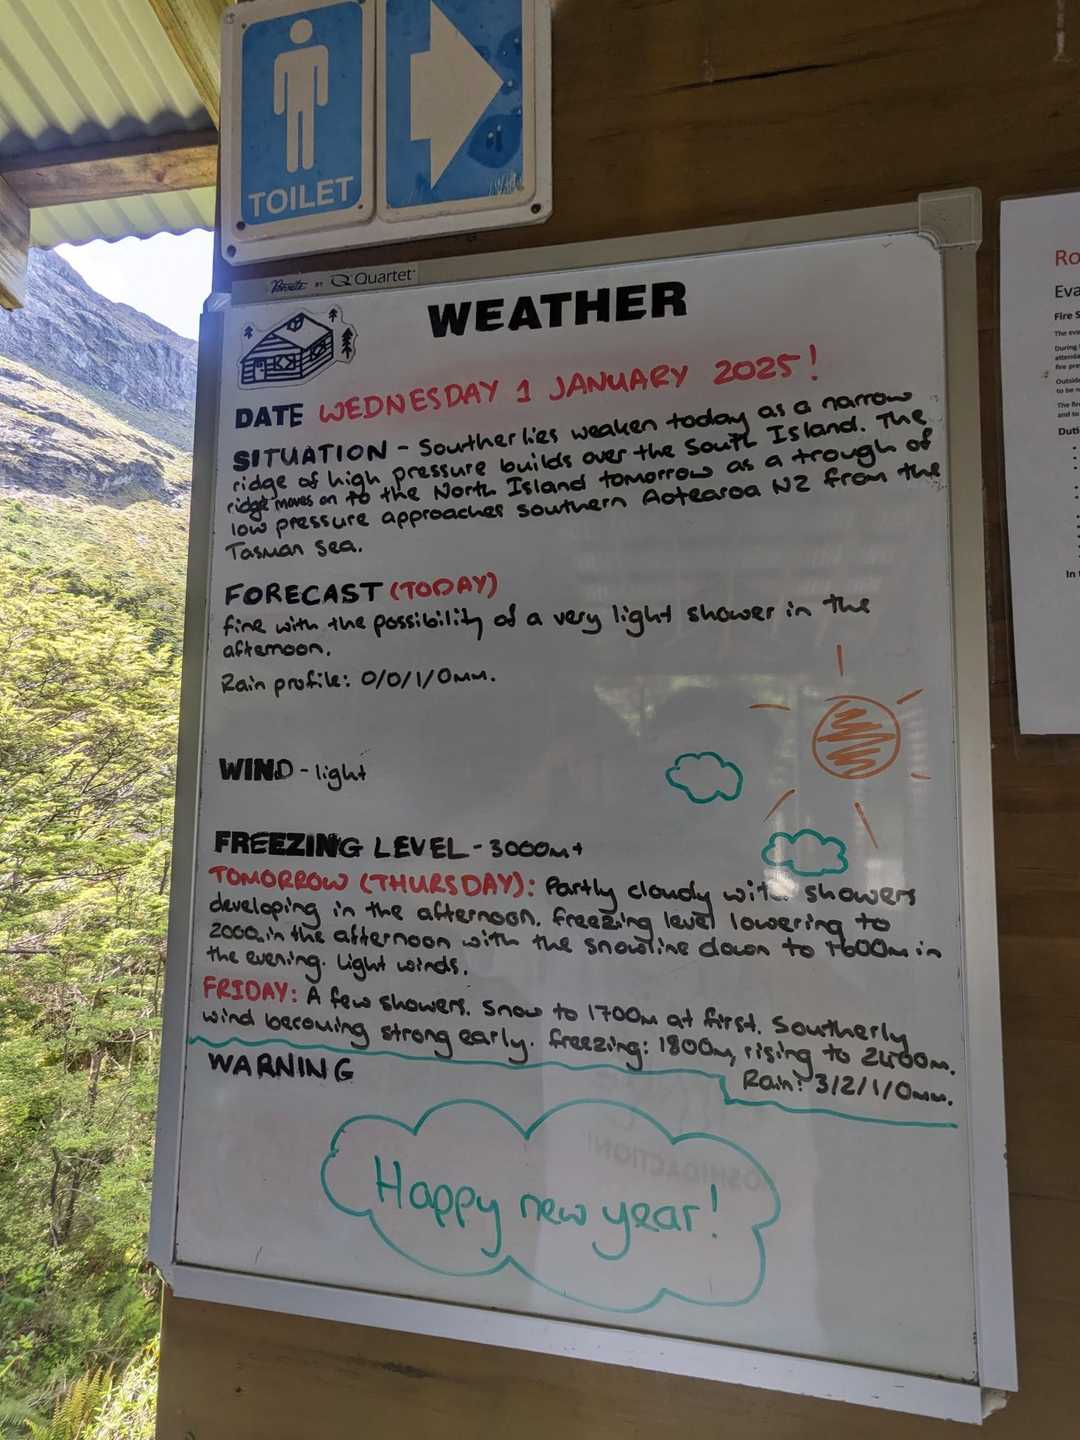 TOILET
Boards BY Quartet
WEATHER
DATE WEDNESDAY 1 JANUARY 2025!
SITUATION - Southerlies weaken today as a narrow
ridge of high pressure builds over the South Island. The
ridge moves on to the North Island tomorrow as a trough of
low pressure approaches southern Aotearoa NZ from the
Tasman Sea.
FORECAST (TODAY)
fine with the possibility of a very light shower in the
afternoon.
Rain profile: 0/0/1/0mm.
WIND - light
FREEZING LEVEL - 3000m+
TOMORROW (THURSDAY): Partly cloudy with showers
developing in the afternoon. freezing level lowering to
2000m in the afternoon with the snowline down to 1600m in
the evening. Light winds.
FRIDAY: A few showers. Snow to 1700m at first. Southerly
wind becoming strong early. freezing: 1800m, rising to 2400m.
Rain: 3/2/1/0mm.
WARNING
Happy new year!
Ro
Eva
Fire S
The eva
During
attenda
fire pre
Outside
to be
The fire
and to
Duti
In t